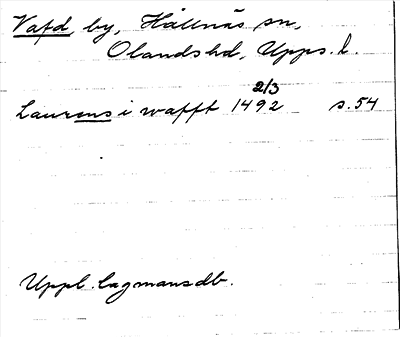 Vafd, by, Hållnäs sn,
Olands hd, Upps. l.
2/3
Laurens i wafft 1492 s. 54
Uppl. lagmansdb.